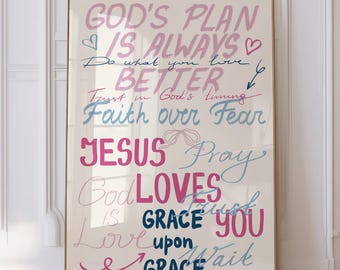 GOD'S PLAN
IS ALWAYS
Do what you love
BETTER
Trust in God's timing
Faith over Fear
JESUS Pray
God LOVES Trust
IS GRACE YOU
Love upon
Wait
GRACE